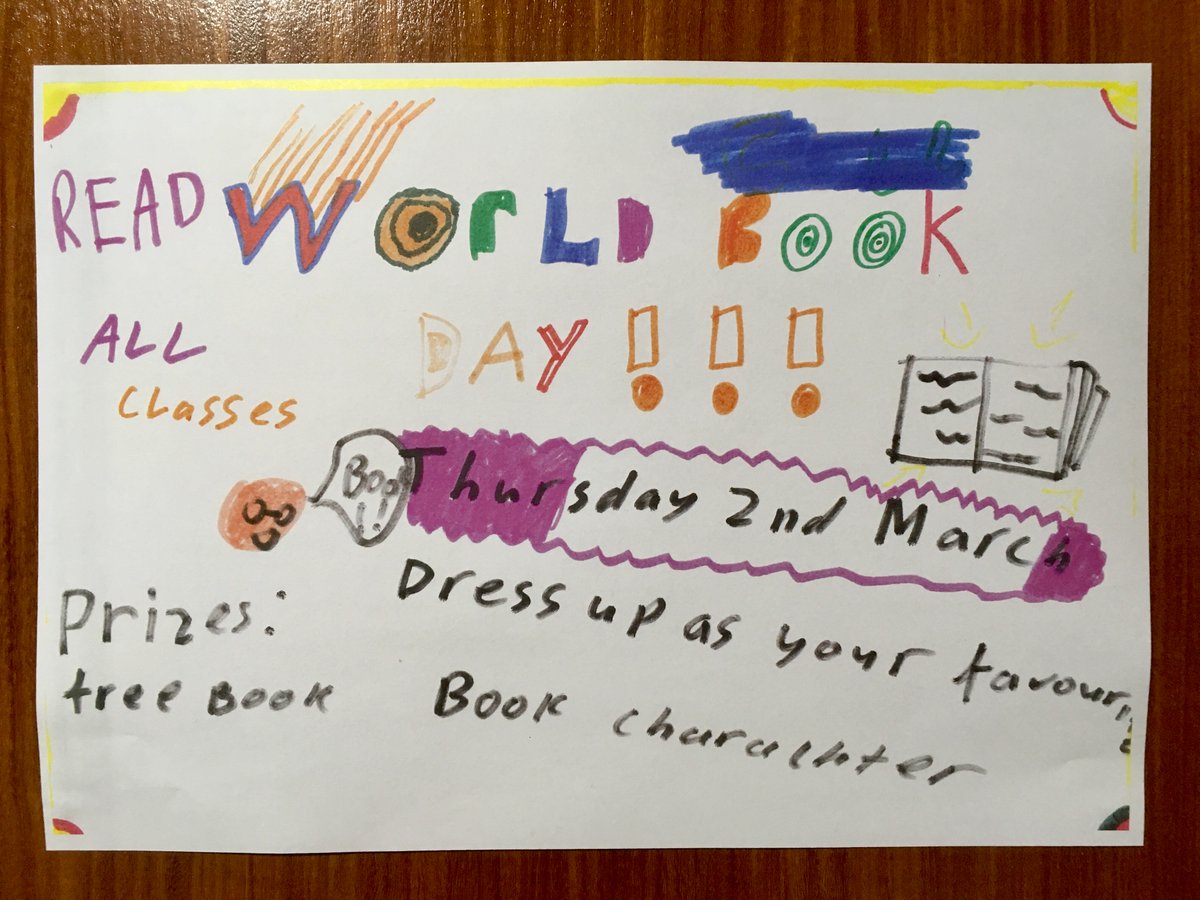 READ WORLD BOOK
ALL DAY!!!
classes
Boo!!
Thursday 2nd March
Prizes:
Dress up as your favourite
free BOOK
Book charachter